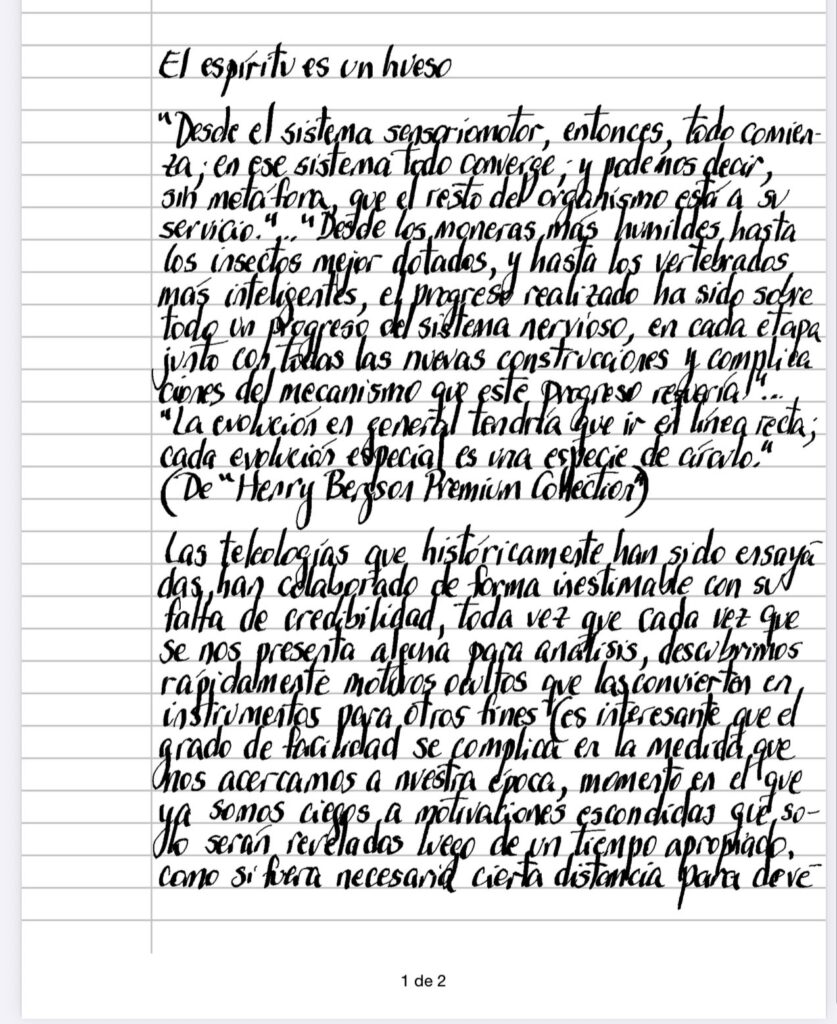 El espíritu es un hueso
"Desde el sistema sensoriomotor, entonces, todo comien-
za; en ese sistema todo converge; y podemos decir,
sin metáfora, que el resto del organismo está a su
servicio."..."Desde los moneras más humildes hasta
los insectos mejor dotados, y hasta los vertebrados
más inteligentes, el progreso realizado ha sido sobre
todo un progreso del sistema nervioso, en cada etapa
junto con todas las nuevas construcciones y complica
ciones del mecanismo que este progreso requería."...
"La evolución en general tendría que ir en línea recta;
cada evolución especial es una especie de círculo."
(De "Henry Bergson Premium Collection")
Las teleologías que históricamente han sido ensaya
das, han colaborado de forma inestimable con su
falta de credibilidad, toda vez que cada vez que
se nos presenta alguna para análisis, descubrimos
rápidamente motivos ocultos que las convierten en
instrumentos para otros fines (es interesante que el
grado de facilidad se complica en la medida que
nos acercamos a nuestra época, momento en el que
ya somos ciegos a motivaciones escondidas que so-
lo serán reveladas luego de un tiempo apropiado,
como si fuera necesaria cierta distancia para deve
1 de 2